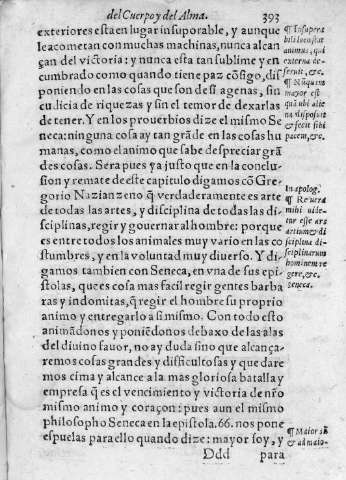 del Cuerpo y del Alma. 393
exteriores esta en lugar insuporable, y aunque
le acometan con muchas machinas, nunca alcan
çan del victoria: y nunca esta tan sublime y en
cumbrado como quando tiene paz cõsigo, dis
poniendo en las cosas que son de si agenas, sin
cudicia de riquezas y sin el temor de dexarlas
de tener. Y en los prouerbios dize el mismo Se
neca: ninguna cosa ay tan grãde en las cosas hu
manas, como el animo que sabe despreciar grã
des cosas. Sera pues ya justo que en la conclu-
sion y remate de este capitulo digamos cõ Gre
gorio Nazianzeno q̃ verdaderamente es arte
de todas las artes, y disciplina de todas las di
sciplinas, regir y gouernar al hombre: porque
es entre todos los animales muy vario en las co
stumbres, y en la voluntad muy diuerso. Y di
gamos tambien con Seneca, en vna de sus epi
stolas, que es cosa mas facil regir gentes barba
ras y indomitas, q̃ regir el hombre su proprio
animo y entregarlo a si mismo. Con todo esto
animãdonos y poniẽdonos debaxo de las alas
del diuino fauor, no ay duda sino que alcança-
remos cosas grandes y difficultosas y que dare
mos cima y alcance a la mas gloriosa batalla y
empresa q̃ es el vencimiento y victoria de nr̃o
mismo animo y coraçon: pues aun el mismo
philosopho Seneca en la epistola. 66. nos pone
espuelas para ello quando dize: mayor soy, y
Ddd para
¶ Insupera
bili loco stat
animus, qui
externa de-
seruit, &c.
¶ Nũquam
maior est
quã ubi alie
na disposuit
& fecit sibi
pacem, &c.
In apolog.
¶ Reuera
mihi uide-
tur esse ars
artium & di
sciplina di-
sciplinarum
hominem re
gere, &c.
Seneca.
¶ Maior sũ
& ad maio-